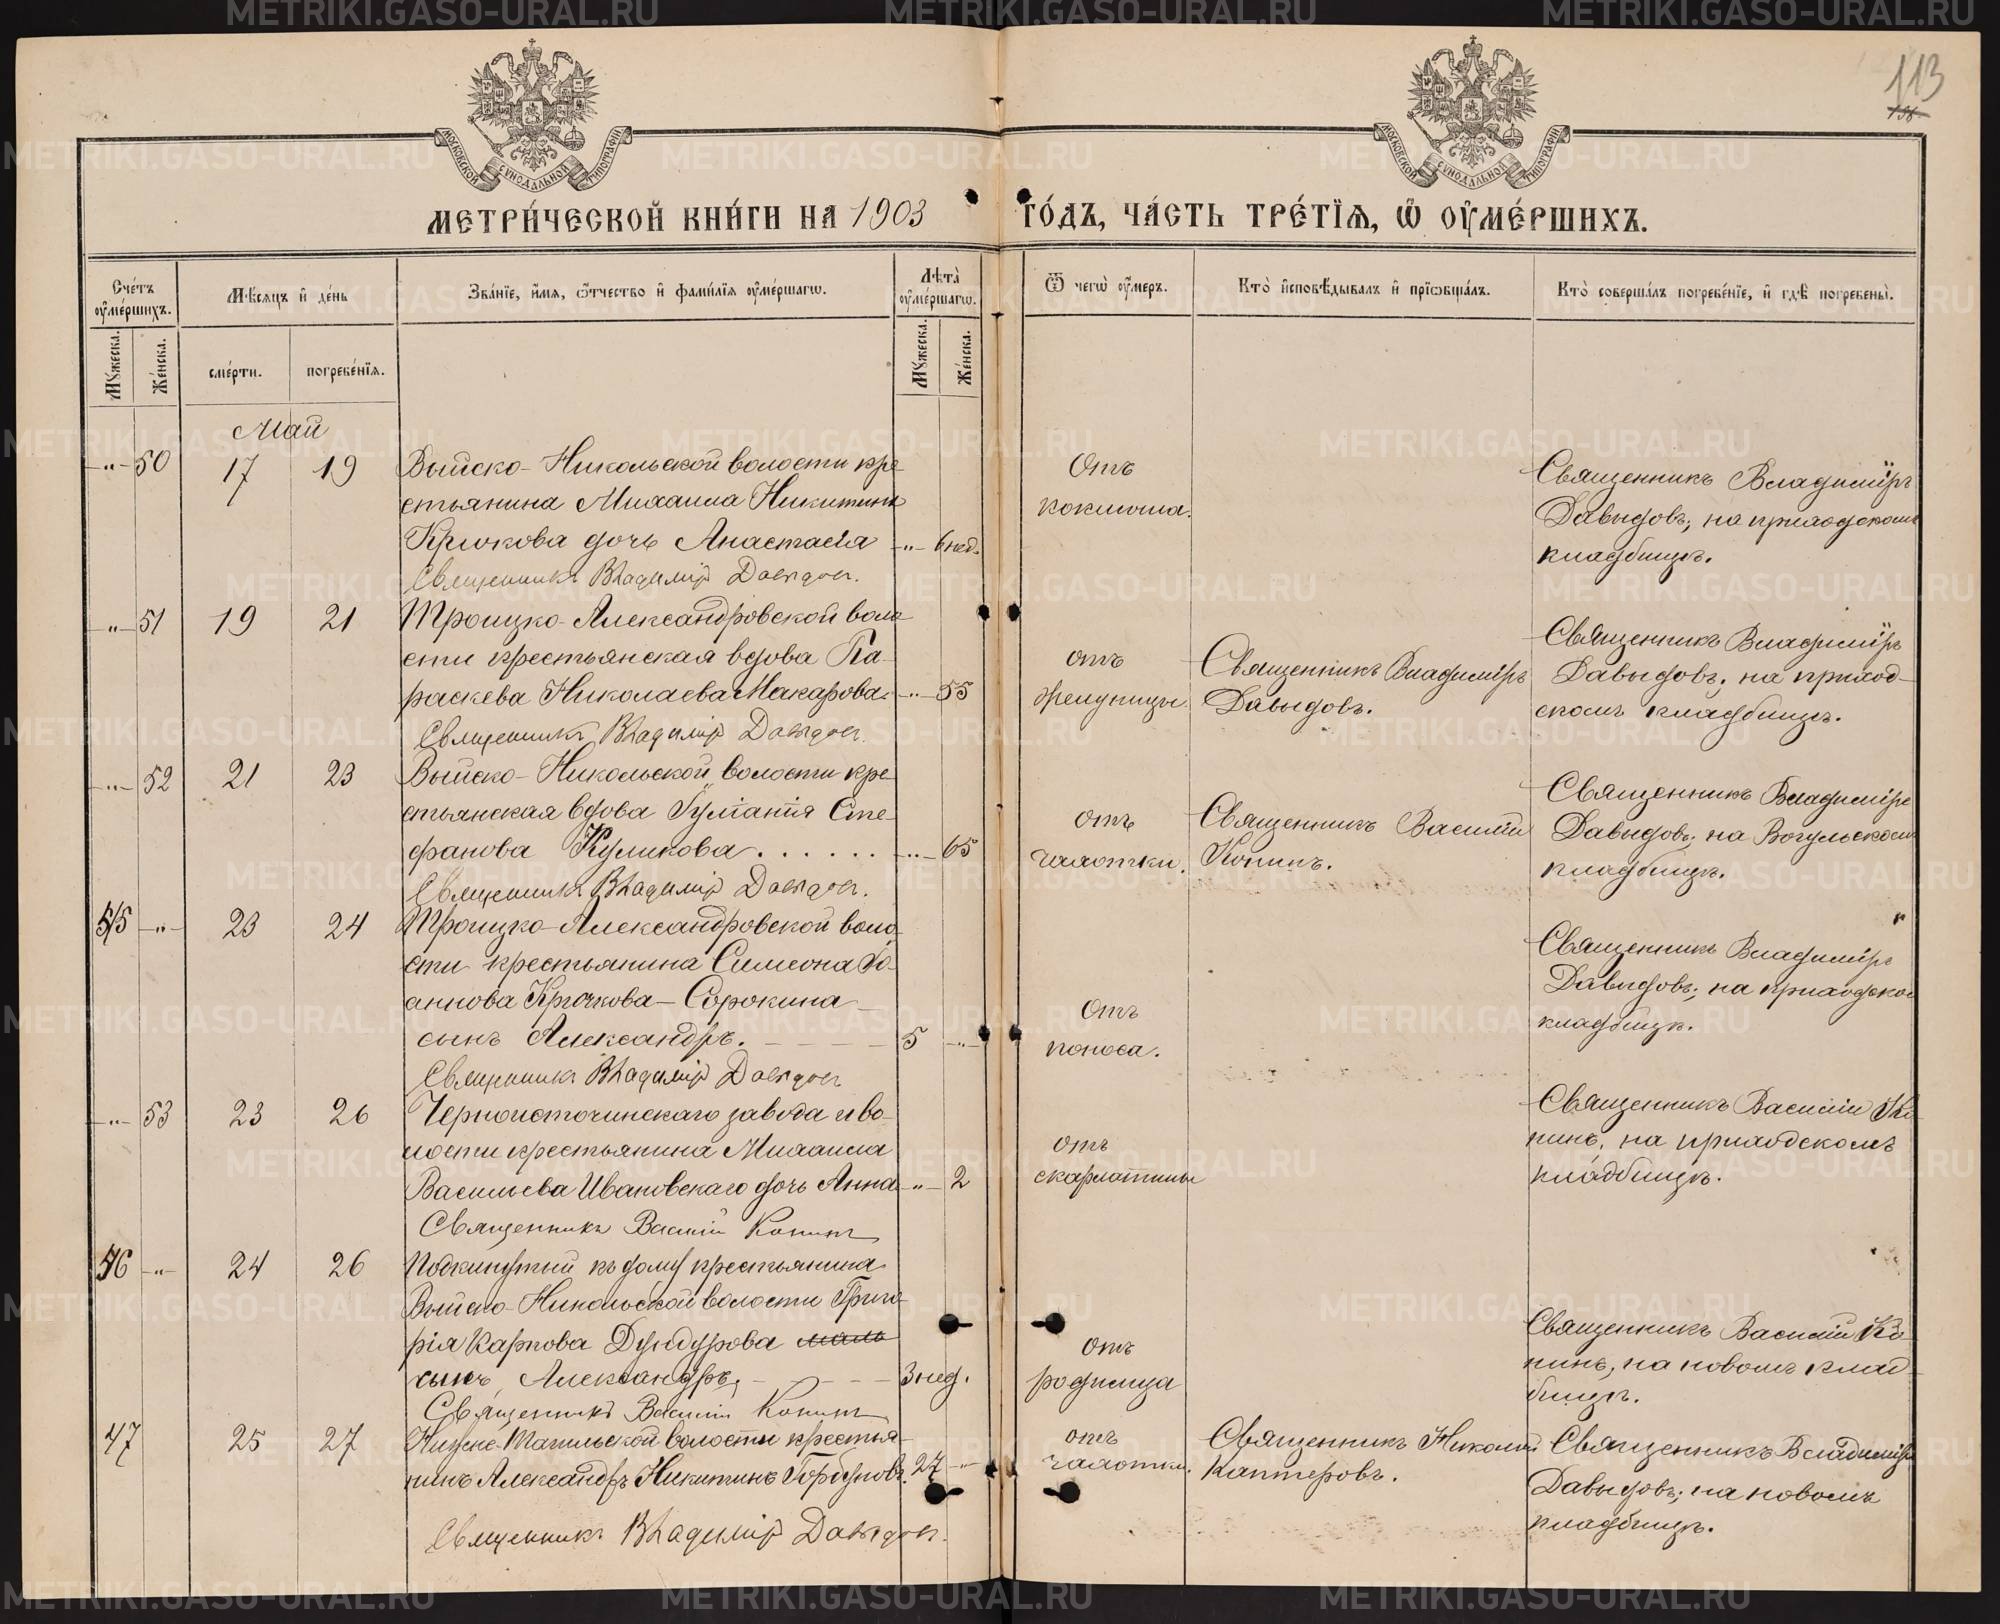 113
МОСКОВСКОЙ СУНОДАЛЬНОЙ ТИПОГРАФІИ
МОСКОВСКОЙ СУНОДАЛЬНОЙ ТИПОГРАФІИ
МЕТРИ́ЧЕСКОЙ КНИ́ГИ НА 1903 ГО́ДЪ, ЧА́СТЬ ТРЕ́ТІѦ, Ѽ ОУ҆МЕ́РШИХЪ.
Сче́тъ оу҆ме́ршихъ.
Мѣ́сѧцъ и҆ де́нь
Зва́нїе, и҆́мѧ, ѻ҆́тчество и҆ фами́лїѧ оу҆ме́ршагѡ.
Лѣ́та оу҆ме́ршагѡ.
Ѿ чегѡ̀ оу҆́меръ.
Кто̀ и҆сповѣ́дывалъ и҆ прїѡбща́лъ.
Кто̀ соверша́лъ погребе́нїе, и҆ гдѣ̀ погребены̀.
Мꙋ́жеска.
Же́нска.
сме́рти.
погребе́нїѧ.
Мꙋ́жеска.
Же́нска.
Май
-"- 50 17 19 Выйско-Никольской волости кре
стьянина Михаила Никитина
Крюкова дочь Анастасія -"- 6 нед.
Священникъ Владиміръ Давыдовъ.
Отъ
коклюша.
Священникъ Владиміръ
Давыдовъ; на приходскомъ
кладбищѣ.
-"- 51 19 21 Троицко-Александровской воло
сти крестьянская вдова Па-
раскева Николаева Макарова -"- 55
Священникъ Владиміръ Давыдовъ.
отъ
желудицы
Священникъ Владиміръ
Давыдовъ.
Священникъ Владиміръ
Давыдовъ; на приход-
скомъ кладбищѣ.
-"- 52 21 23 Выйско-Никольской волости кре
стьянская вдова Гуліанія Сте-
фанова Куликова . . . . . . -"- 65
Священникъ Владиміръ Давыдовъ.
отъ
чахотки.
Священникъ Василій
Копинъ.
Священникъ Владиміръ
Давыдовъ; на Вогульскомъ
кладбищѣ.
45 -"- 23 24 Троицко-Александровской воло
сти крестьянина Симеона Іо-
аннова Крючкова-Сорокина
сынъ Александръ. - - - - 5 -"-
Священникъ Владиміръ Давыдовъ
Отъ
поноса.
Священникъ Владиміръ
Давыдовъ; на приходском
кладбищѣ.
-"- 53 23 26 Черноисточинскаго завода и во-
лости крестьянина Михаила
Васильева Ивановскаго дочь Анна -"- 2
Священникъ Василій Копинъ
отъ
скарлатины
Священникъ Василій Ко-
пинъ, на приходскомъ
кладбищѣ.
46 -"- 24 26 Подкинутый къ дому крестьянина
Выйско-Никольской волости Григо-
рія Карпова Дундурова
сынъ Александръ, - - - - 3 нед.
Священникъ Василій Копинъ
Отъ
родимца
Священникъ Василій Ко-
пинъ, на новомъ клад-
бищѣ.
47 25 27 Нижне-Тагильской волости крестья-
нинъ Александръ Никитинъ Горбуновъ. 27 -"-
Священникъ Владиміръ Давыдовъ.
отъ
чахотки.
Священникъ Николай
Каптеровъ.
Священникъ Владиміръ
Давыдовъ; на новомъ
кладбищѣ.
METRIKI.GASO-URAL.RU